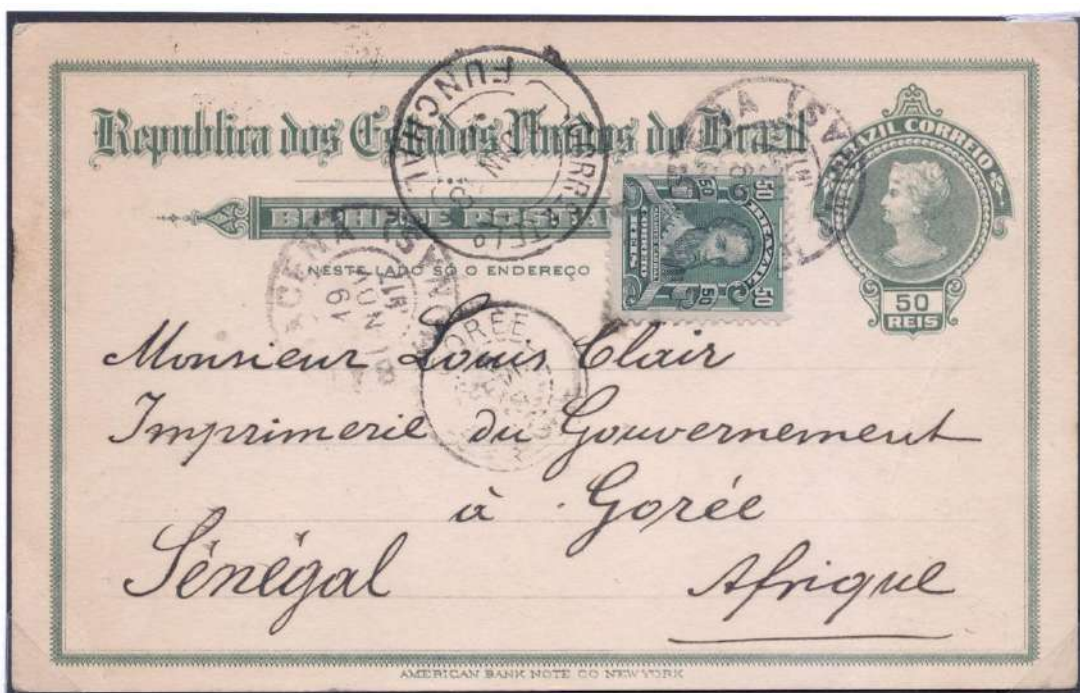 Republica dos Estados Unidos do Brazil
BRAZIL CORREIO
BILHETE POSTAL
NESTE LADO SÓ O ENDEREÇO
50 REIS
FUNCHAL
BRAZIL
CORREIO
50 50
50 50
GORÉE
Monsieur Louis Clair
Imprimerie du Gouvernement
à Gorée
Sénégal Afrique
AMERICAN BANK NOTE CO NEW YORK